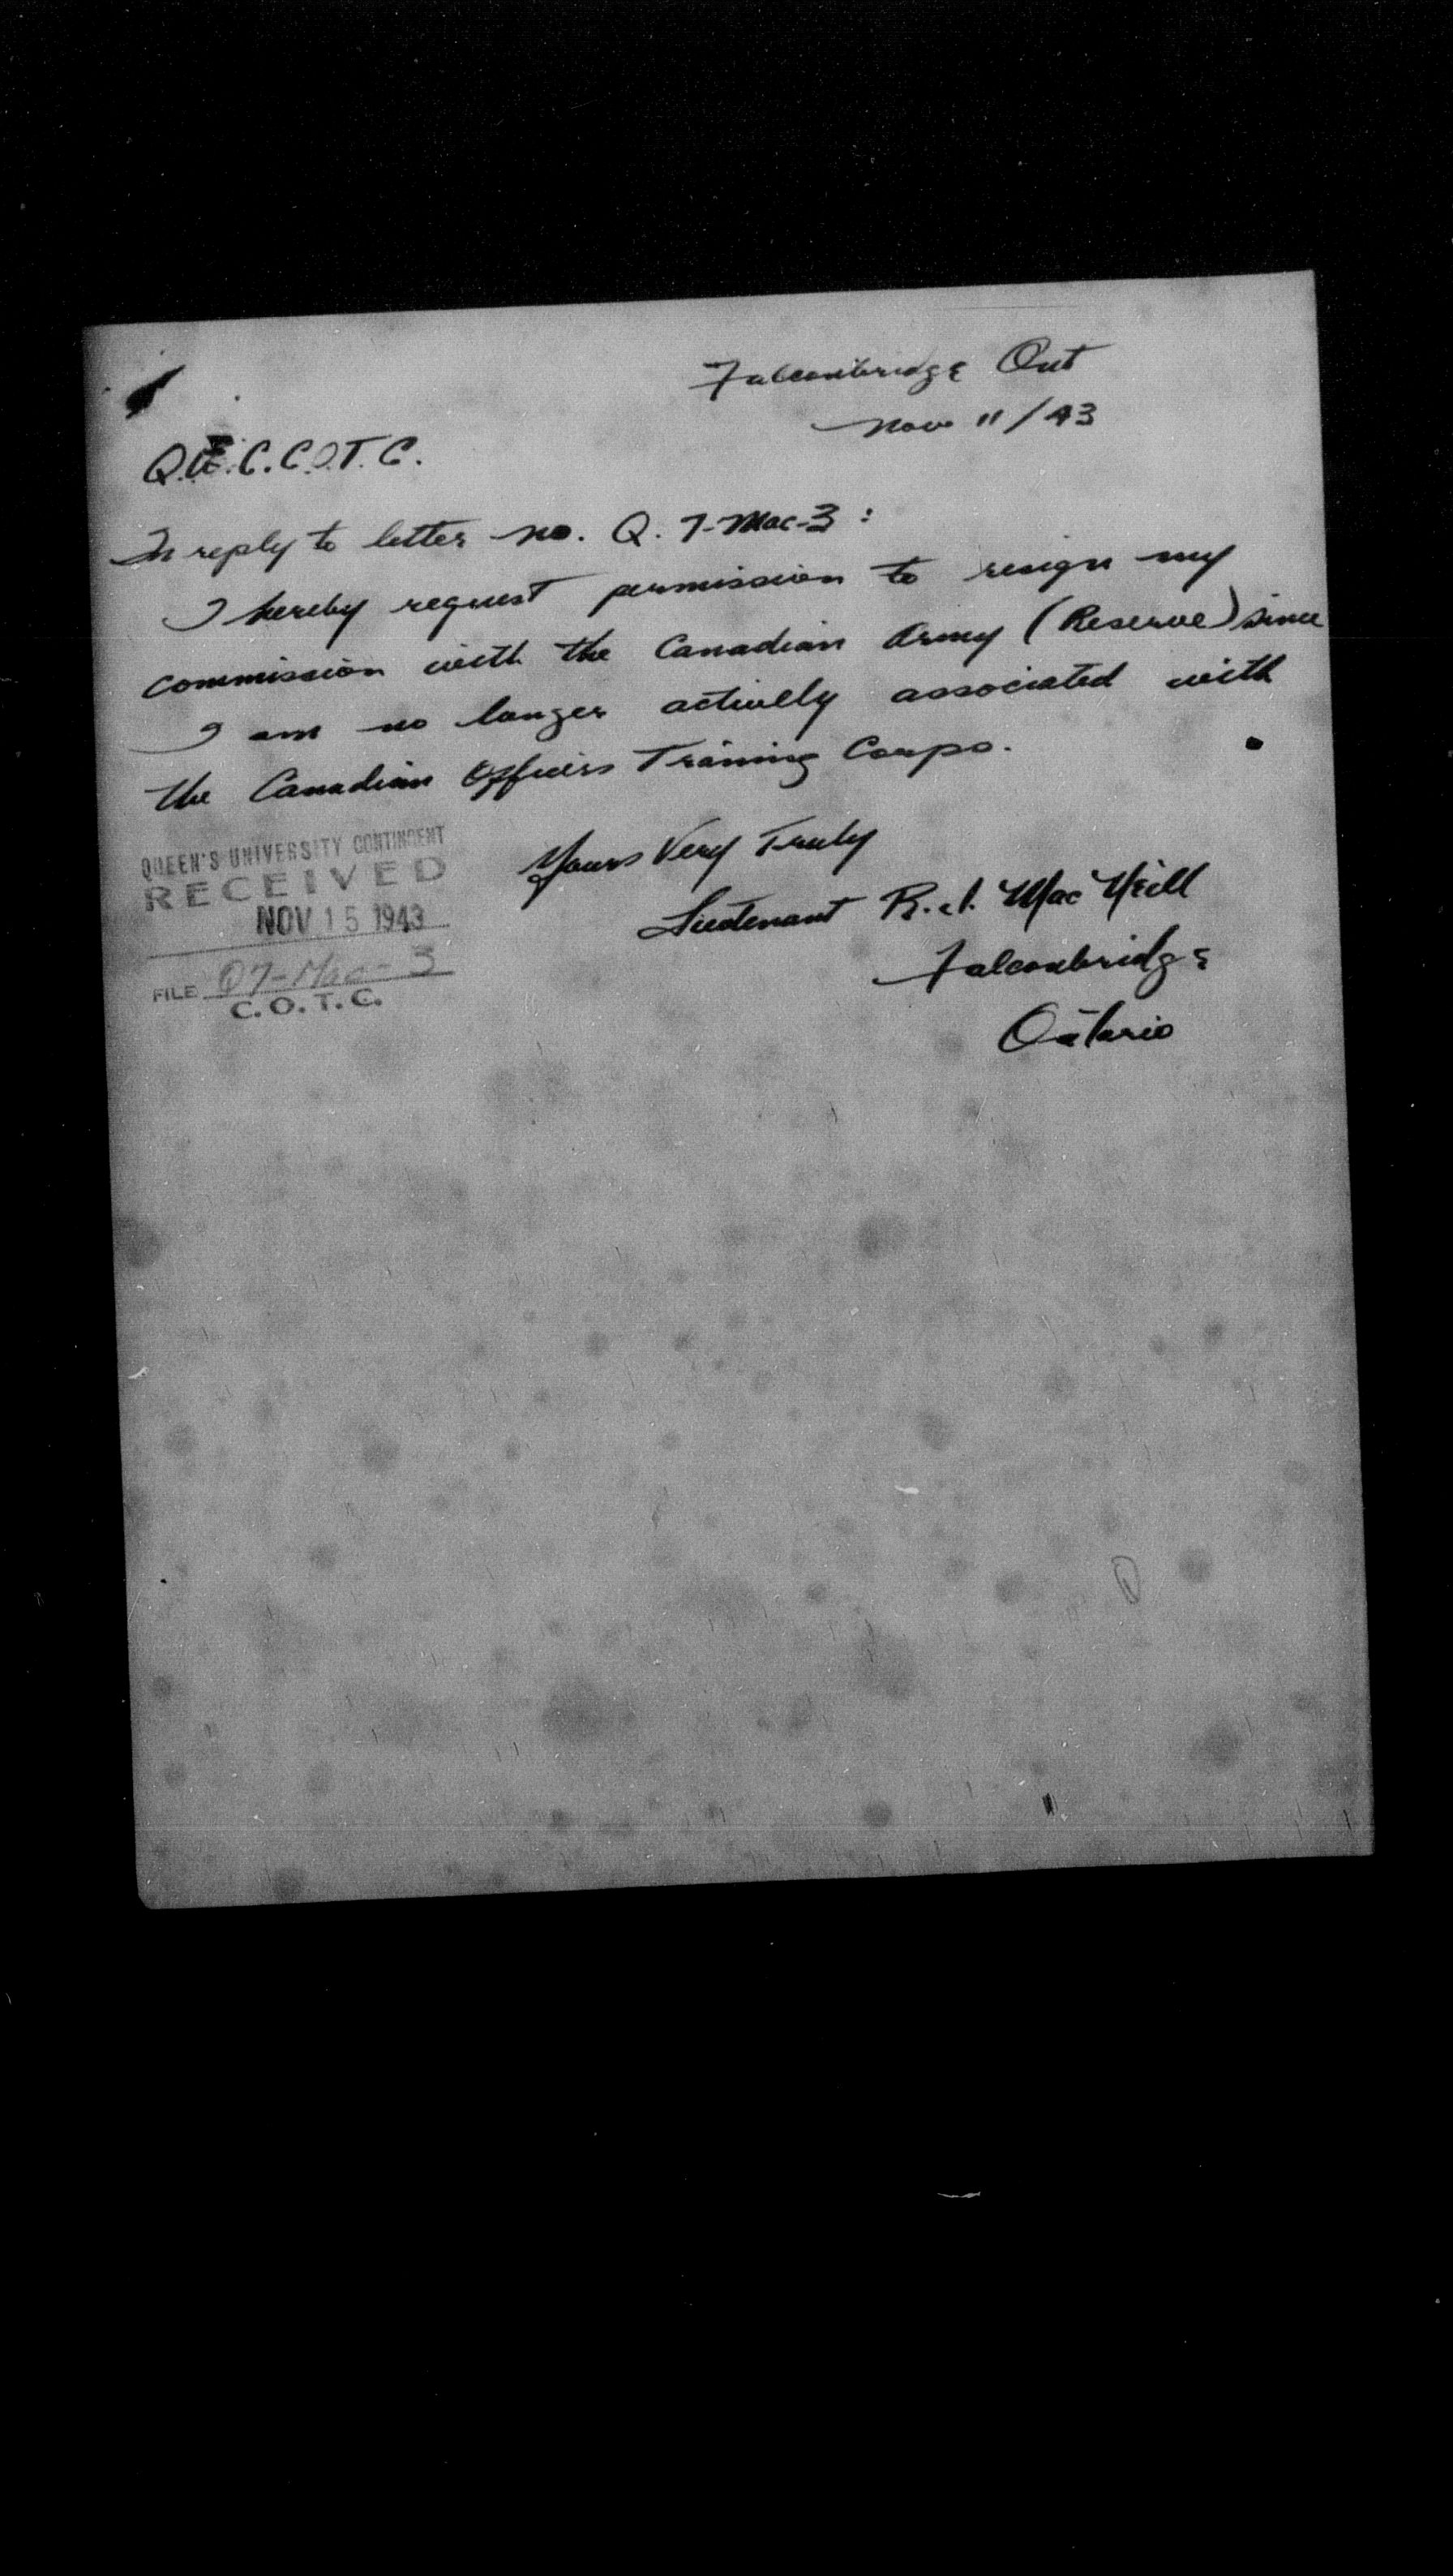 Falconbridge Ont
Nov 11/43
Q.U.C.C.O.T.C.
In reply to letter no. Q. 7-Mac-3:
I hereby request permission to resign my
commission with the Canadian Army (Reserve) since
I am no longer actively associated with
the Canadian Officers Training Corps.
Yours Very Truly
Lieutenant R.J. MacNeill
Falconbridge
Ontario
QUEEN'S UNIVERSITY CONTINGENT
RECEIVED
NOV 15 1943
FILE Q7-Mac-3
C.O.T.C.